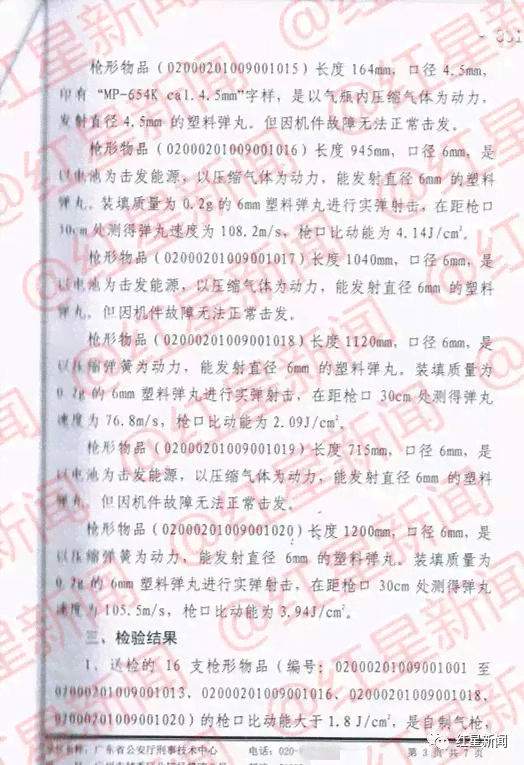 - 031
枪形物品（02000201009001015）长度 164mm，口径 4.5mm，
印有 “MP-654K cal.4.5mm”字样，是以气瓶内压缩气体为动力，
发射直径 4.5mm 的塑料弹丸。但因机件故障无法正常击发。
枪形物品（02000201009001016）长度 945mm，口径 6mm，是
以电池为击发能源，以压缩气体为动力，能发射直径 6mm 的塑料
弹丸。装填质量为 0.2g 的 6mm 塑料弹丸进行实弹射击，在距枪口
30cm 处测得弹丸速度为 108.2m/s，枪口比动能为 4.14J/cm²。
枪形物品（02000201009001017）长度 1040mm，口径 6mm，是
以电池为击发能源，以压缩气体为动力，能发射直径 6mm 的塑料
弹丸。但因机件故障无法正常击发。
枪形物品（02000201009001018）长度 1120mm，口径 6mm，是
以压缩弹簧为动力，能发射直径 6mm 的塑料弹丸。装填质量为
0.2g 的 6mm 塑料弹丸进行实弹射击，在距枪口 30cm 处测得弹丸
速度为 76.8m/s，枪口比动能为 2.09J/cm²。
枪形物品（02000201009001019）长度 715mm，口径 6mm，是
以电池为击发能源，以压缩气体为动力，能发射直径 6mm 的塑料
弹丸。但因机件故障无法正常击发。
枪形物品（02000201009001020）长度 1200mm，口径 6mm，是
以压缩弹簧为动力，能发射直径 6mm 的塑料弹丸。装填质量为
0.2g 的 6mm 塑料弹丸进行实弹射击，在距枪口 30cm 处测得弹丸
速度为 105.5m/s，枪口比动能为 3.94J/cm²。
三、检验结果
1、送检的 16 支枪形物品（编号：02000201009001001 至
02000201009001013、02000201009001016、02000201009001018、
02000201009001020）的枪口比动能大于 1.8 J/cm²，是自制气枪，
广东省公安厅刑事技术中心 电话：020- 第 3 页 共 7 页
@红星新闻
红星新闻